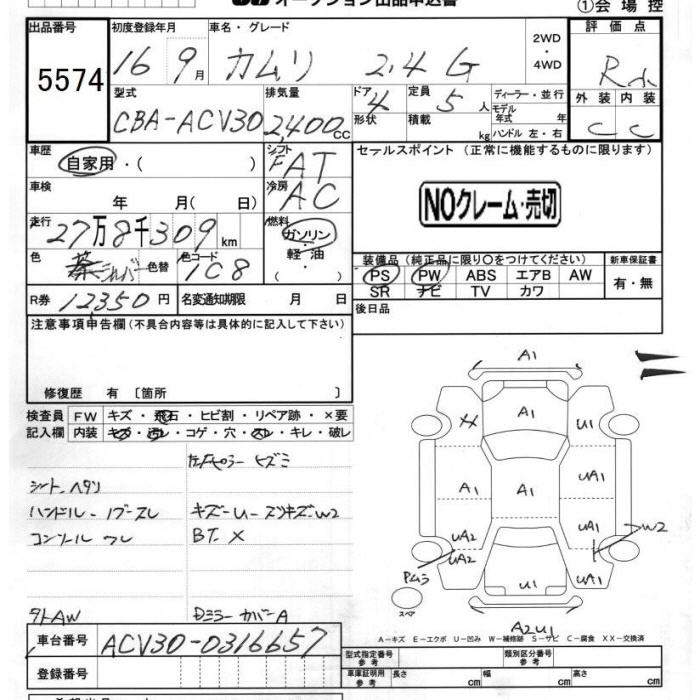 オークション出品申込書
①会場控
出品番号 初度登録年月 車名・グレード 2WD・4WD 評価点
5574 16 9月 カムリ 2.4 G R
型式 排気量 ドア形状 定員 積載 ディーラー・並行 モデル年式 年 外装 内装
CBA-ACV30 2,400CC 4 5人 kg ハンドル 左・右 C C
車歴 シフト セールスポイント (正常に機能するものに限ります)
自家用・( ) FAT
車検 冷房 NOクレーム・売切
年 月( 日) AC
走行 燃料
27万8千309km ガソリン・軽油・
色 色替 色コード 装備品 (純正品に限り○をつけてください) 新車保証書
茶 シルバー 1C8 PS PW ABS エアB AW 有・無
SR ナビ TV カワ
R券 12,350円 名変通知期限 月 日 後日品
注意事項申告欄(不具合内容等は具体的に記入して下さい)
修復歴 有 〔箇所 〕
検査員記入欄 FW キズ・飛石・ヒビ割・リペア跡・×要
内装 キズ・汚レ・コゲ・穴・スレ・キレ・破レ
左Fピラー ヒズミ
シート ヘタリ
ハンドル-ノブースレ キズ-U-スリキズW2
コンソール ワレ BT.X
タトAW Dミラーカバー A
車台番号 ACV30-0316657
登録番号
A1
X A1 U1
UA1
A1 A1
UA2 UA1 W2
UA2 U1 UA1
Pムラ
スペア
A2U1
A-キズ E-エクボ U-凹み W-補修跡 S-サビ C-腐食 XX-交換済
型式指定番号 参考 類別区分番号 参考
車庫証明用 参考 長さ 幅 高さ